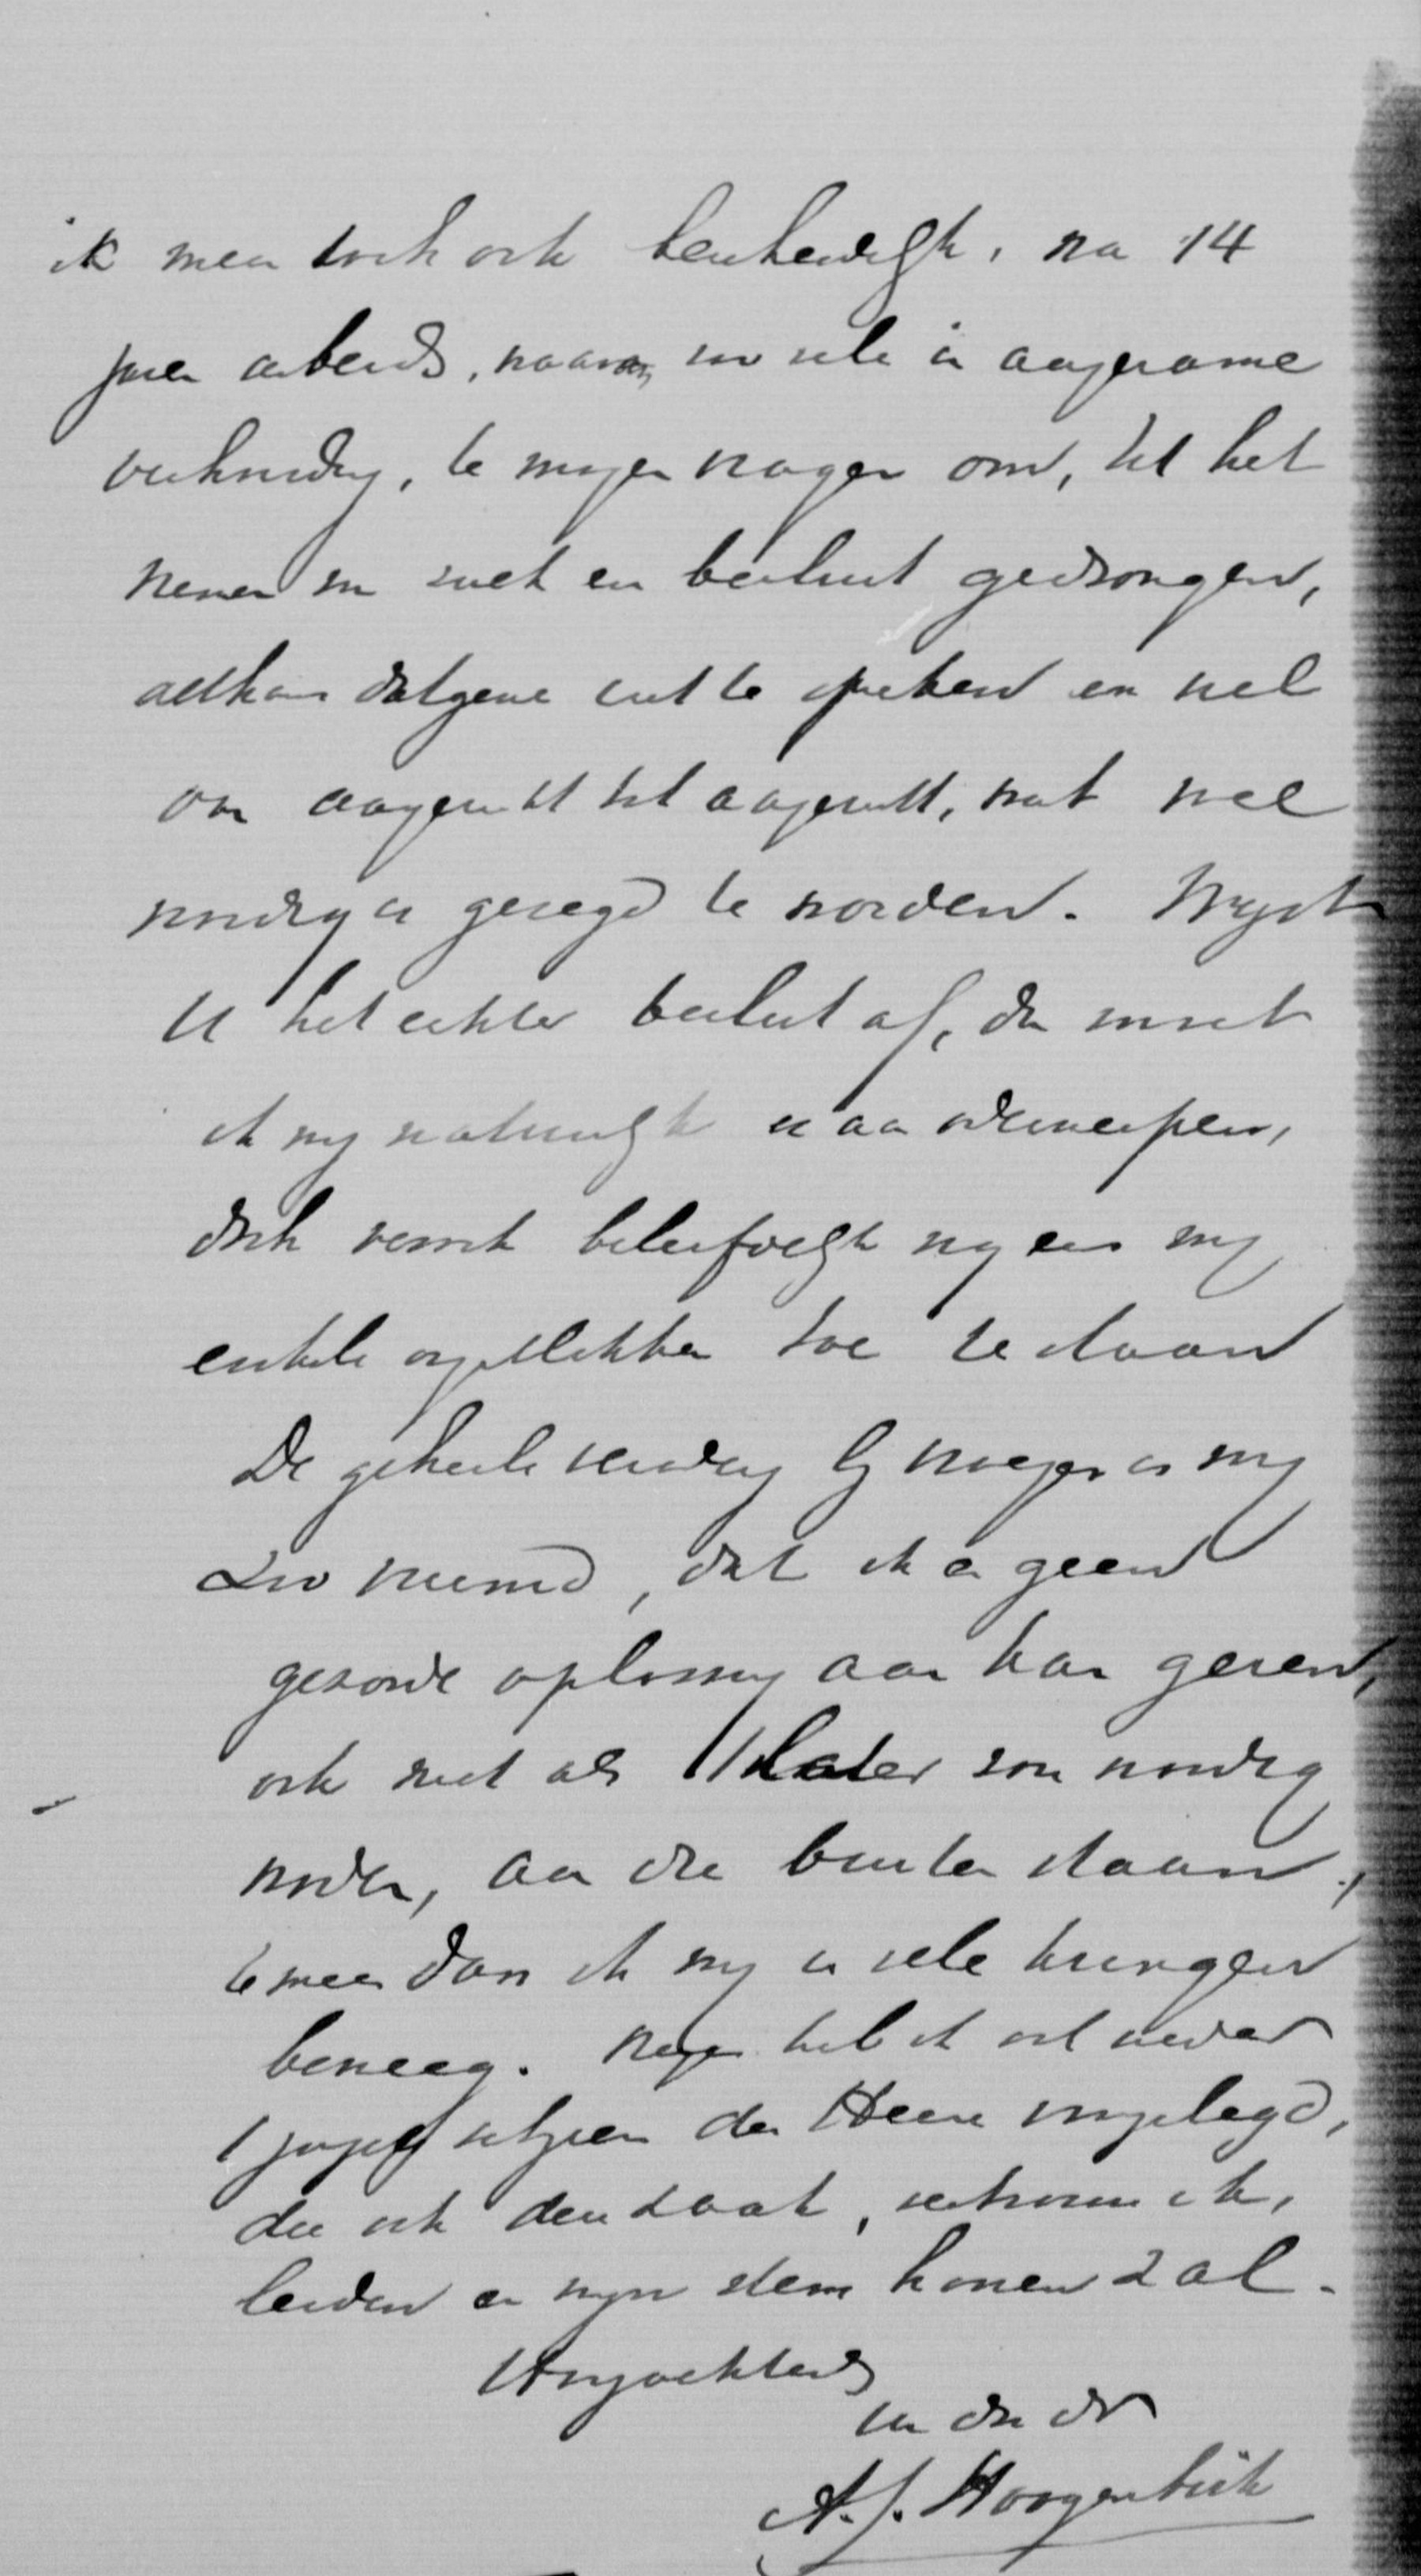 ik meen toch ook bescheidelijk, na 14
jaren arbeids, waarvan zoo vele in aangename
verhouding, te mogen vragen om, tot het
nemen van zulk een besluit gedrongen,
althans datgene uit te spreken en wel
van aangezicht tot aangezicht, wat wel
noodig is gezegd te worden. Wijst
U het echter besluit af, dan moet
ik mij natuurlijk er aan onderwerpen,
doch verzoek beleefdelijk nog eens mij
enkele oogenblikken toe te staan
De geheele wending bij is mij
zoo vreemd, dat ik er geen
gezonde oplossing aan kan geven,
ook niet als later zou noodig
worden, aan die buiten staan,
te meer daar ik mij in vele kringen
beweeg. heb ik ook weder
schrijven den Heere voorgelegd,
die ook deze zaak, vertrouw ik,
leiden en mijn stem hooren zal.
Hoogachtend
Uw dw dr
A. J. Hoogenbirk